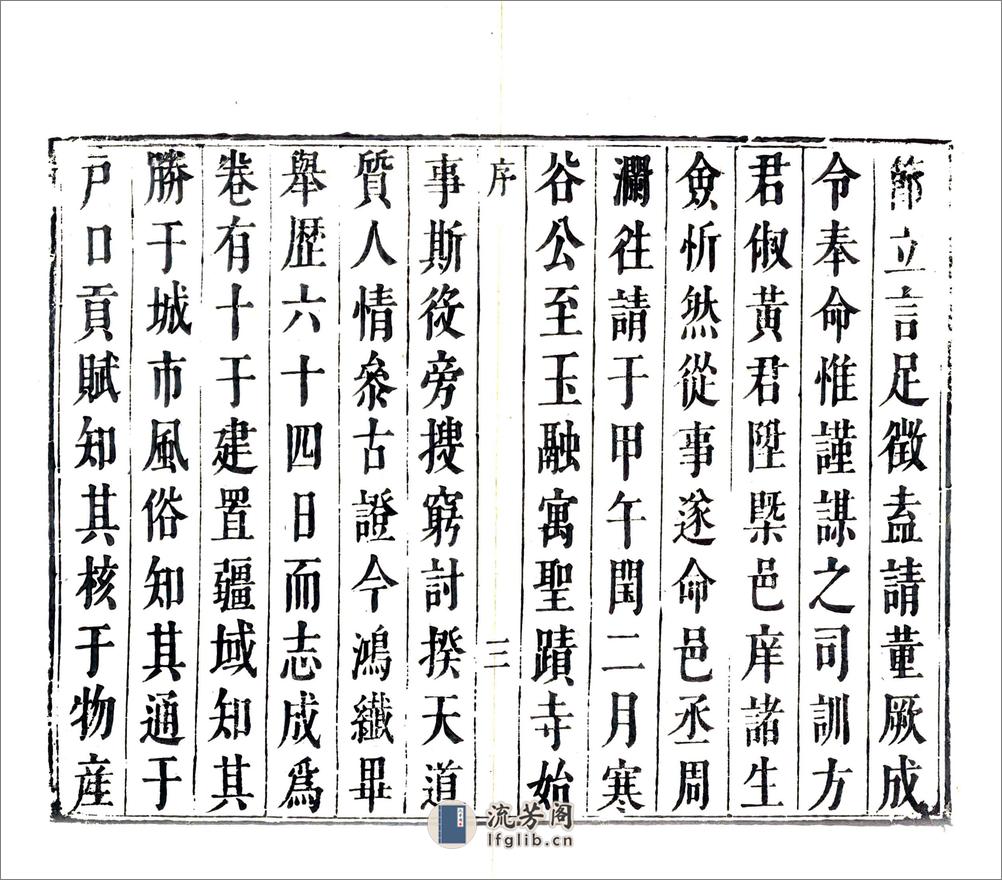 節立言足徵盍請董厥成
令奉命惟謹謀之司訓方
君俶黃君陞槩邑庠諸生
僉忻然從事遂命邑丞周
瀾徃請于甲午閏二月寒
谷公至玉融寓聖蹟寺始
序
三
事斯役旁搜窮討揆天道
質人情叅古證今鴻纖畢
舉歷六十四日而志成爲
卷有十于建置疆域知其
勝于城市風俗知其通于
戸口貢賦知其核于物産
流芳阁
lfglib.cn